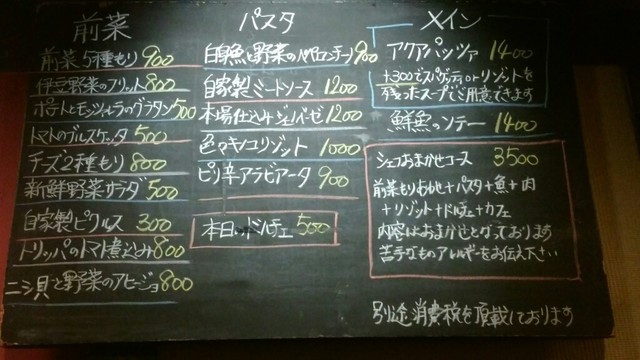 前菜
前菜5種もり 900
伊豆野菜のフリット 800
ポテトとモッツァレラのグラタン 500
トマトのブルスケッタ 500
チーズ2種もり 800
新鮮野菜サラダ 500
自家製ピクルス 300
トリッパのトマト煮込み 800
ニシ貝と野菜のアヒージョ 800
パスタ
白身魚と野菜のペペロンチーノ 900
自家製ミートソース 1200
本場仕込みジェノベーゼ 1200
色々キノコリゾット 1000
ピリ辛アラビアータ 900
本日のドルチェ 500
メイン
アクアパッツァ 1400
+300でスパゲティorリゾットを
残ったスープでご用意できます
鮮魚のソテー 1400
シェフおまかせコース 3500
前菜もりあわせ+パスタ+魚+肉
+リゾット+ドルチェ+カフェ
内容はおまかせとなっております
苦手なものアレルギーをお伝え下さい
別途消費税を頂戴しております